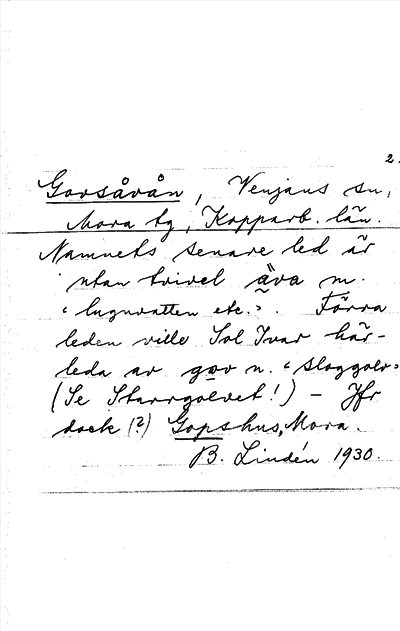 2.
Govsåvån, Venjans sn,
Mora tg, Kopparb. län.
Namnets senare led är
utan tvivel äva m.
"lugnvatten etc.". Förra
leden ville Sol Ivar här-
leda av gov n. "sloggolv"
(Se Starrgolvet!) – Jfr
dock (?) Gopshus, Mora.
B. Lindén 1930.